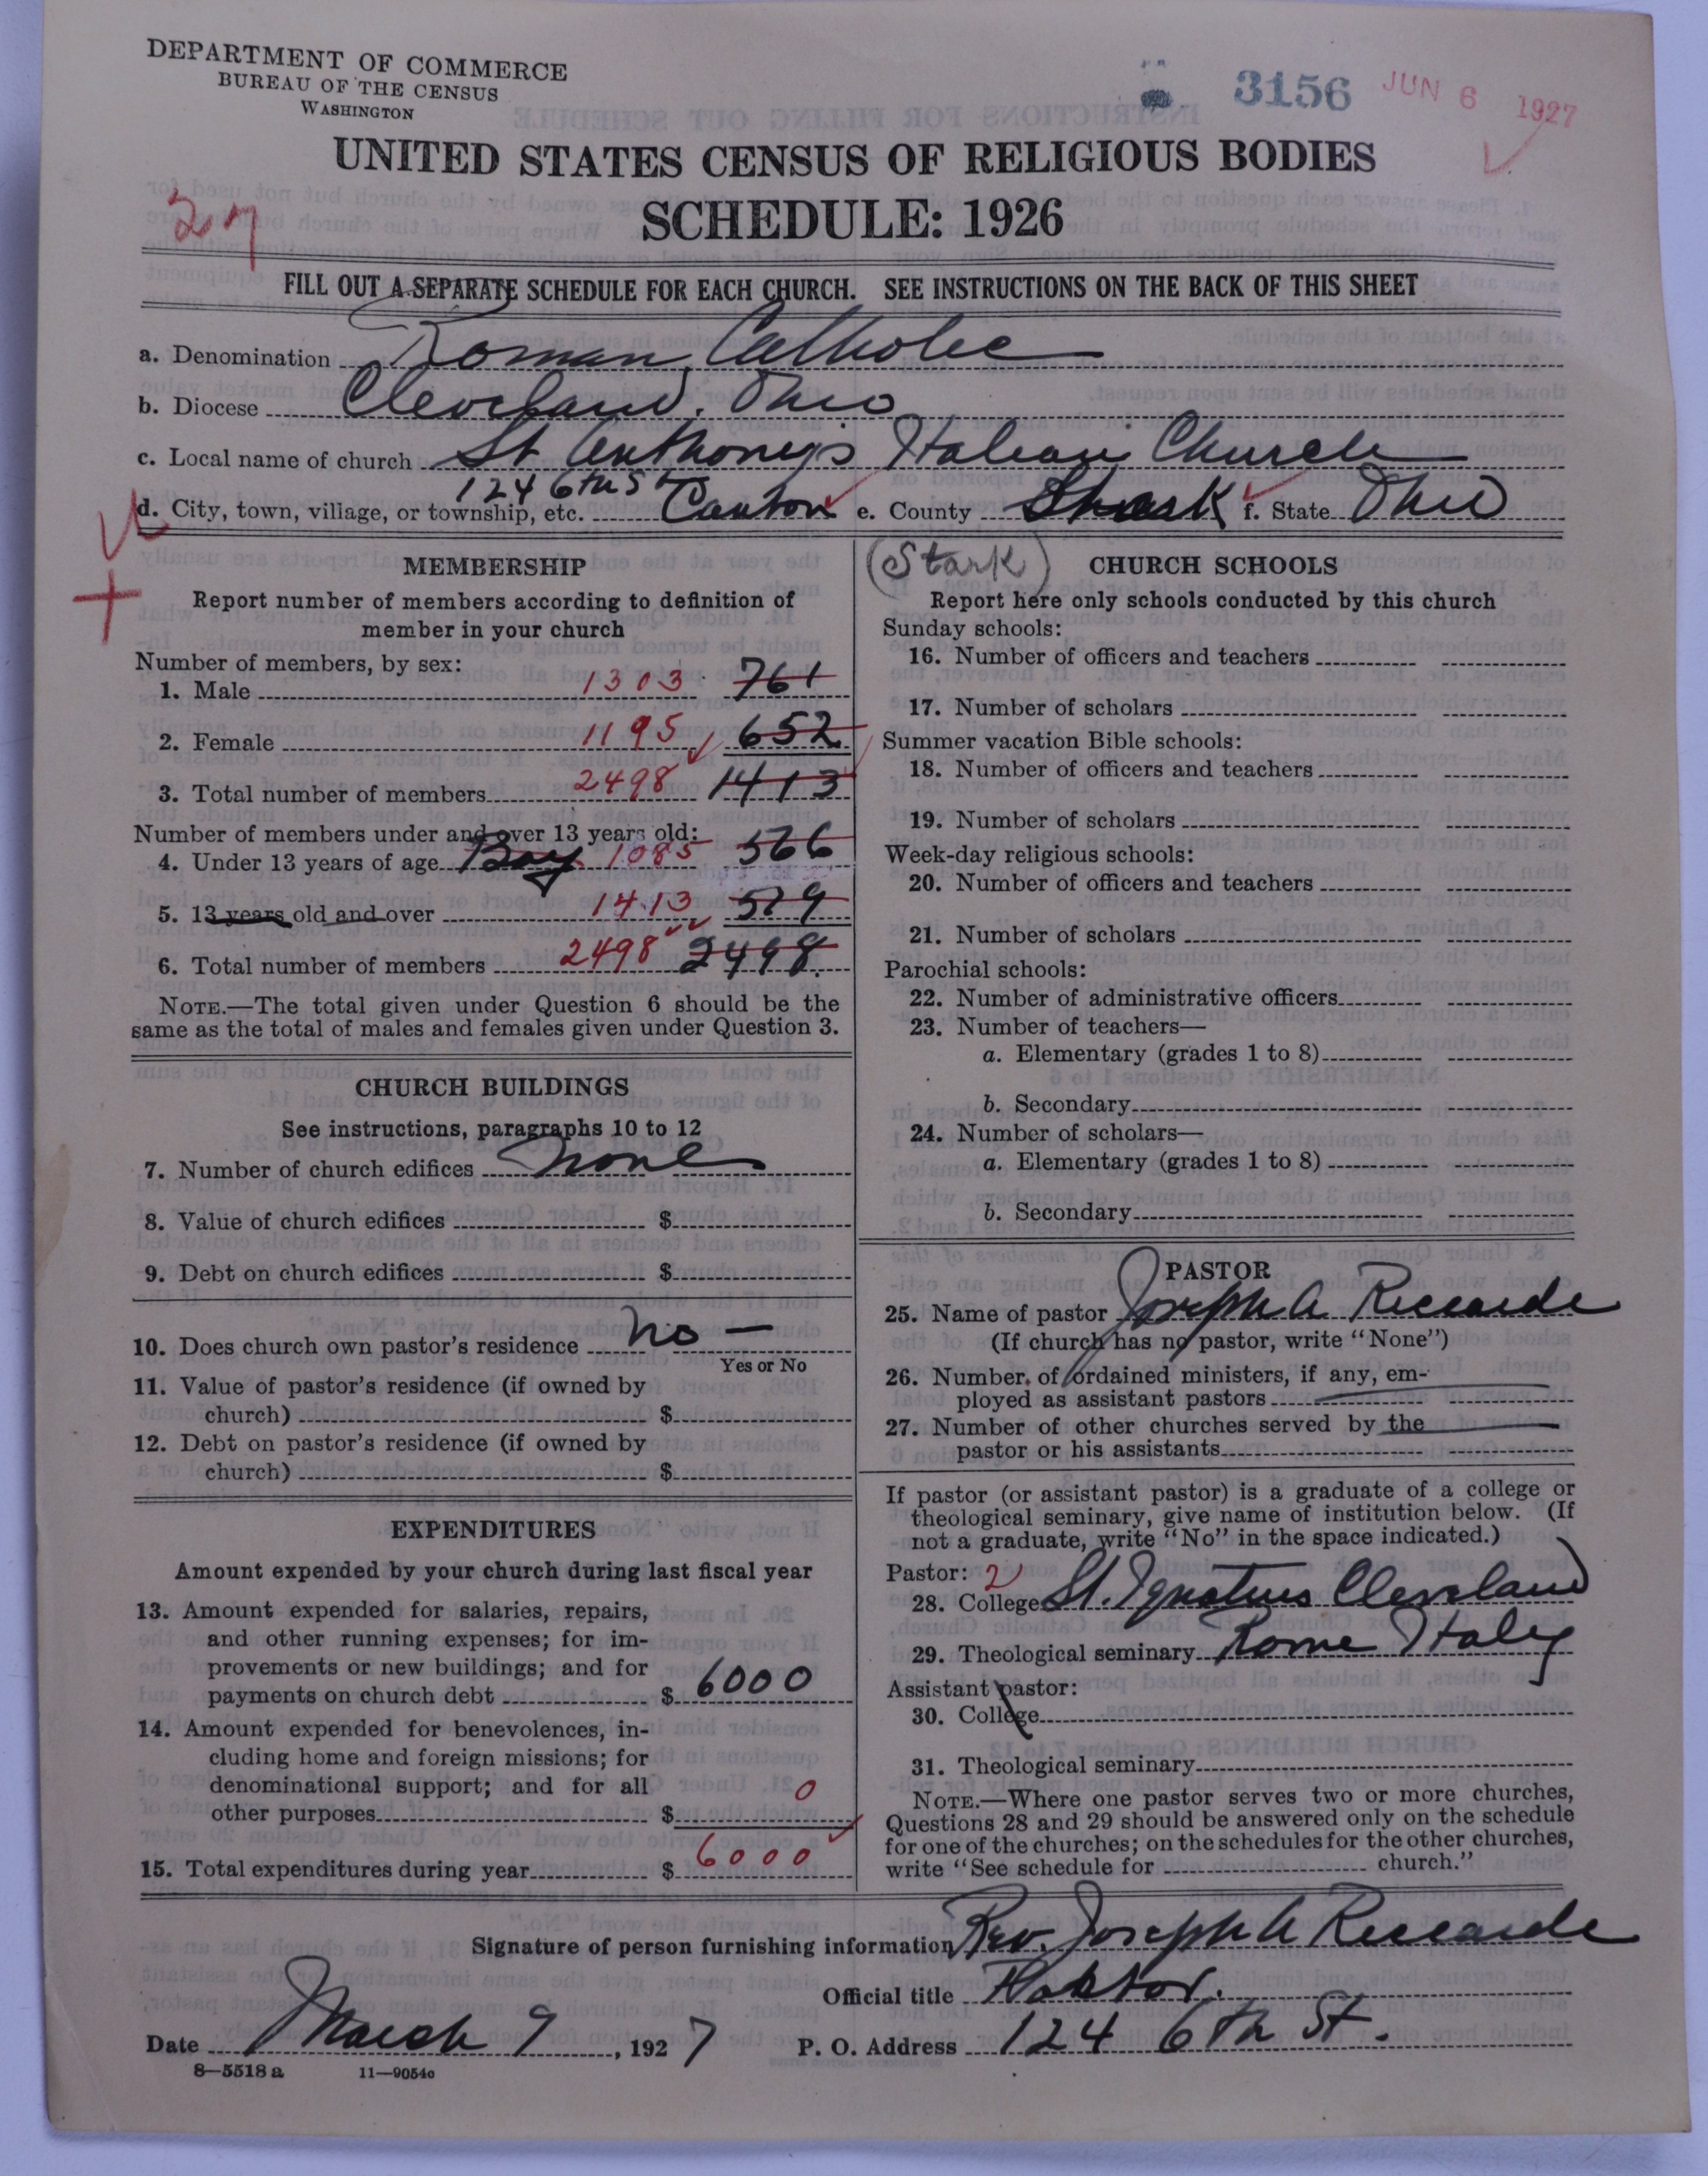 DEPARTMENT OF COMMERCE
BUREAU OF THE CENSUS
WASHINGTON
3156 JUN 6 1927
UNITED STATES CENSUS OF RELIGIOUS BODIES
27
SCHEDULE: 1926
FILL OUT A SEPARATE SCHEDULE FOR EACH CHURCH. SEE INSTRUCTIONS ON THE BACK OF THIS SHEET
a. Denomination Roman Catholic
b. Diocese Cleveland. Ohio
c. Local name of church St Anthony's Italian Church
124 6th St
d. City, town, village, or township, etc. Canton e. County Stark f. State Ohio
MEMBERSHIP
Report number of members according to definition of
member in your church
Number of members, by sex:
1. Male 1303 761
2. Female 1195 652
3. Total number of members 2498 1413
Number of members under and over 13 years old:
4. Under 13 years of age Boy 1085 566
5. 13 years old and over 1413 519
6. Total number of members 2498 2498.
NOTE.—The total given under Question 6 should be the
same as the total of males and females given under Question 3.
CHURCH BUILDINGS
See instructions, paragraphs 10 to 12
7. Number of church edifices none
8. Value of church edifices $
9. Debt on church edifices $
10. Does church own pastor's residence no —
Yes or No
11. Value of pastor's residence (if owned by
church) $
12. Debt on pastor's residence (if owned by
church) $
EXPENDITURES
Amount expended by your church during last fiscal year
13. Amount expended for salaries, repairs,
and other running expenses; for im-
provements or new buildings; and for
payments on church debt $ 6000
14. Amount expended for benevolences, in-
cluding home and foreign missions; for
denominational support; and for all
other purposes $ 0
15. Total expenditures during year $ 6000
(Stark) CHURCH SCHOOLS
Report here only schools conducted by this church
Sunday schools:
16. Number of officers and teachers
17. Number of scholars
Summer vacation Bible schools:
18. Number of officers and teachers
19. Number of scholars
Week-day religious schools:
20. Number of officers and teachers
21. Number of scholars
Parochial schools:
22. Number of administrative officers
23. Number of teachers—
a. Elementary (grades 1 to 8)
b. Secondary
24. Number of scholars—
a. Elementary (grades 1 to 8)
b. Secondary
PASTOR
25. Name of pastor Joseph A Riccardi
(If church has no pastor, write "None")
26. Number of ordained ministers, if any, em-
ployed as assistant pastors
27. Number of other churches served by the
pastor or his assistants
If pastor (or assistant pastor) is a graduate of a college or
theological seminary, give name of institution below. (If
not a graduate, write "No" in the space indicated.)
Pastor: 2
28. College St. Ignatius Cleveland
29. Theological seminary Rome Italy
Assistant pastor:
30. College
31. Theological seminary
NOTE.—Where one pastor serves two or more churches,
Questions 28 and 29 should be answered only on the schedule
for one of the churches; on the schedules for the other churches,
write "See schedule for church."
Signature of person furnishing information Rev. Joseph A Riccardi
Official title Pastor.
Date March 9, 1927 P. O. Address 124 6th St.
8—5518 a 11—9054o